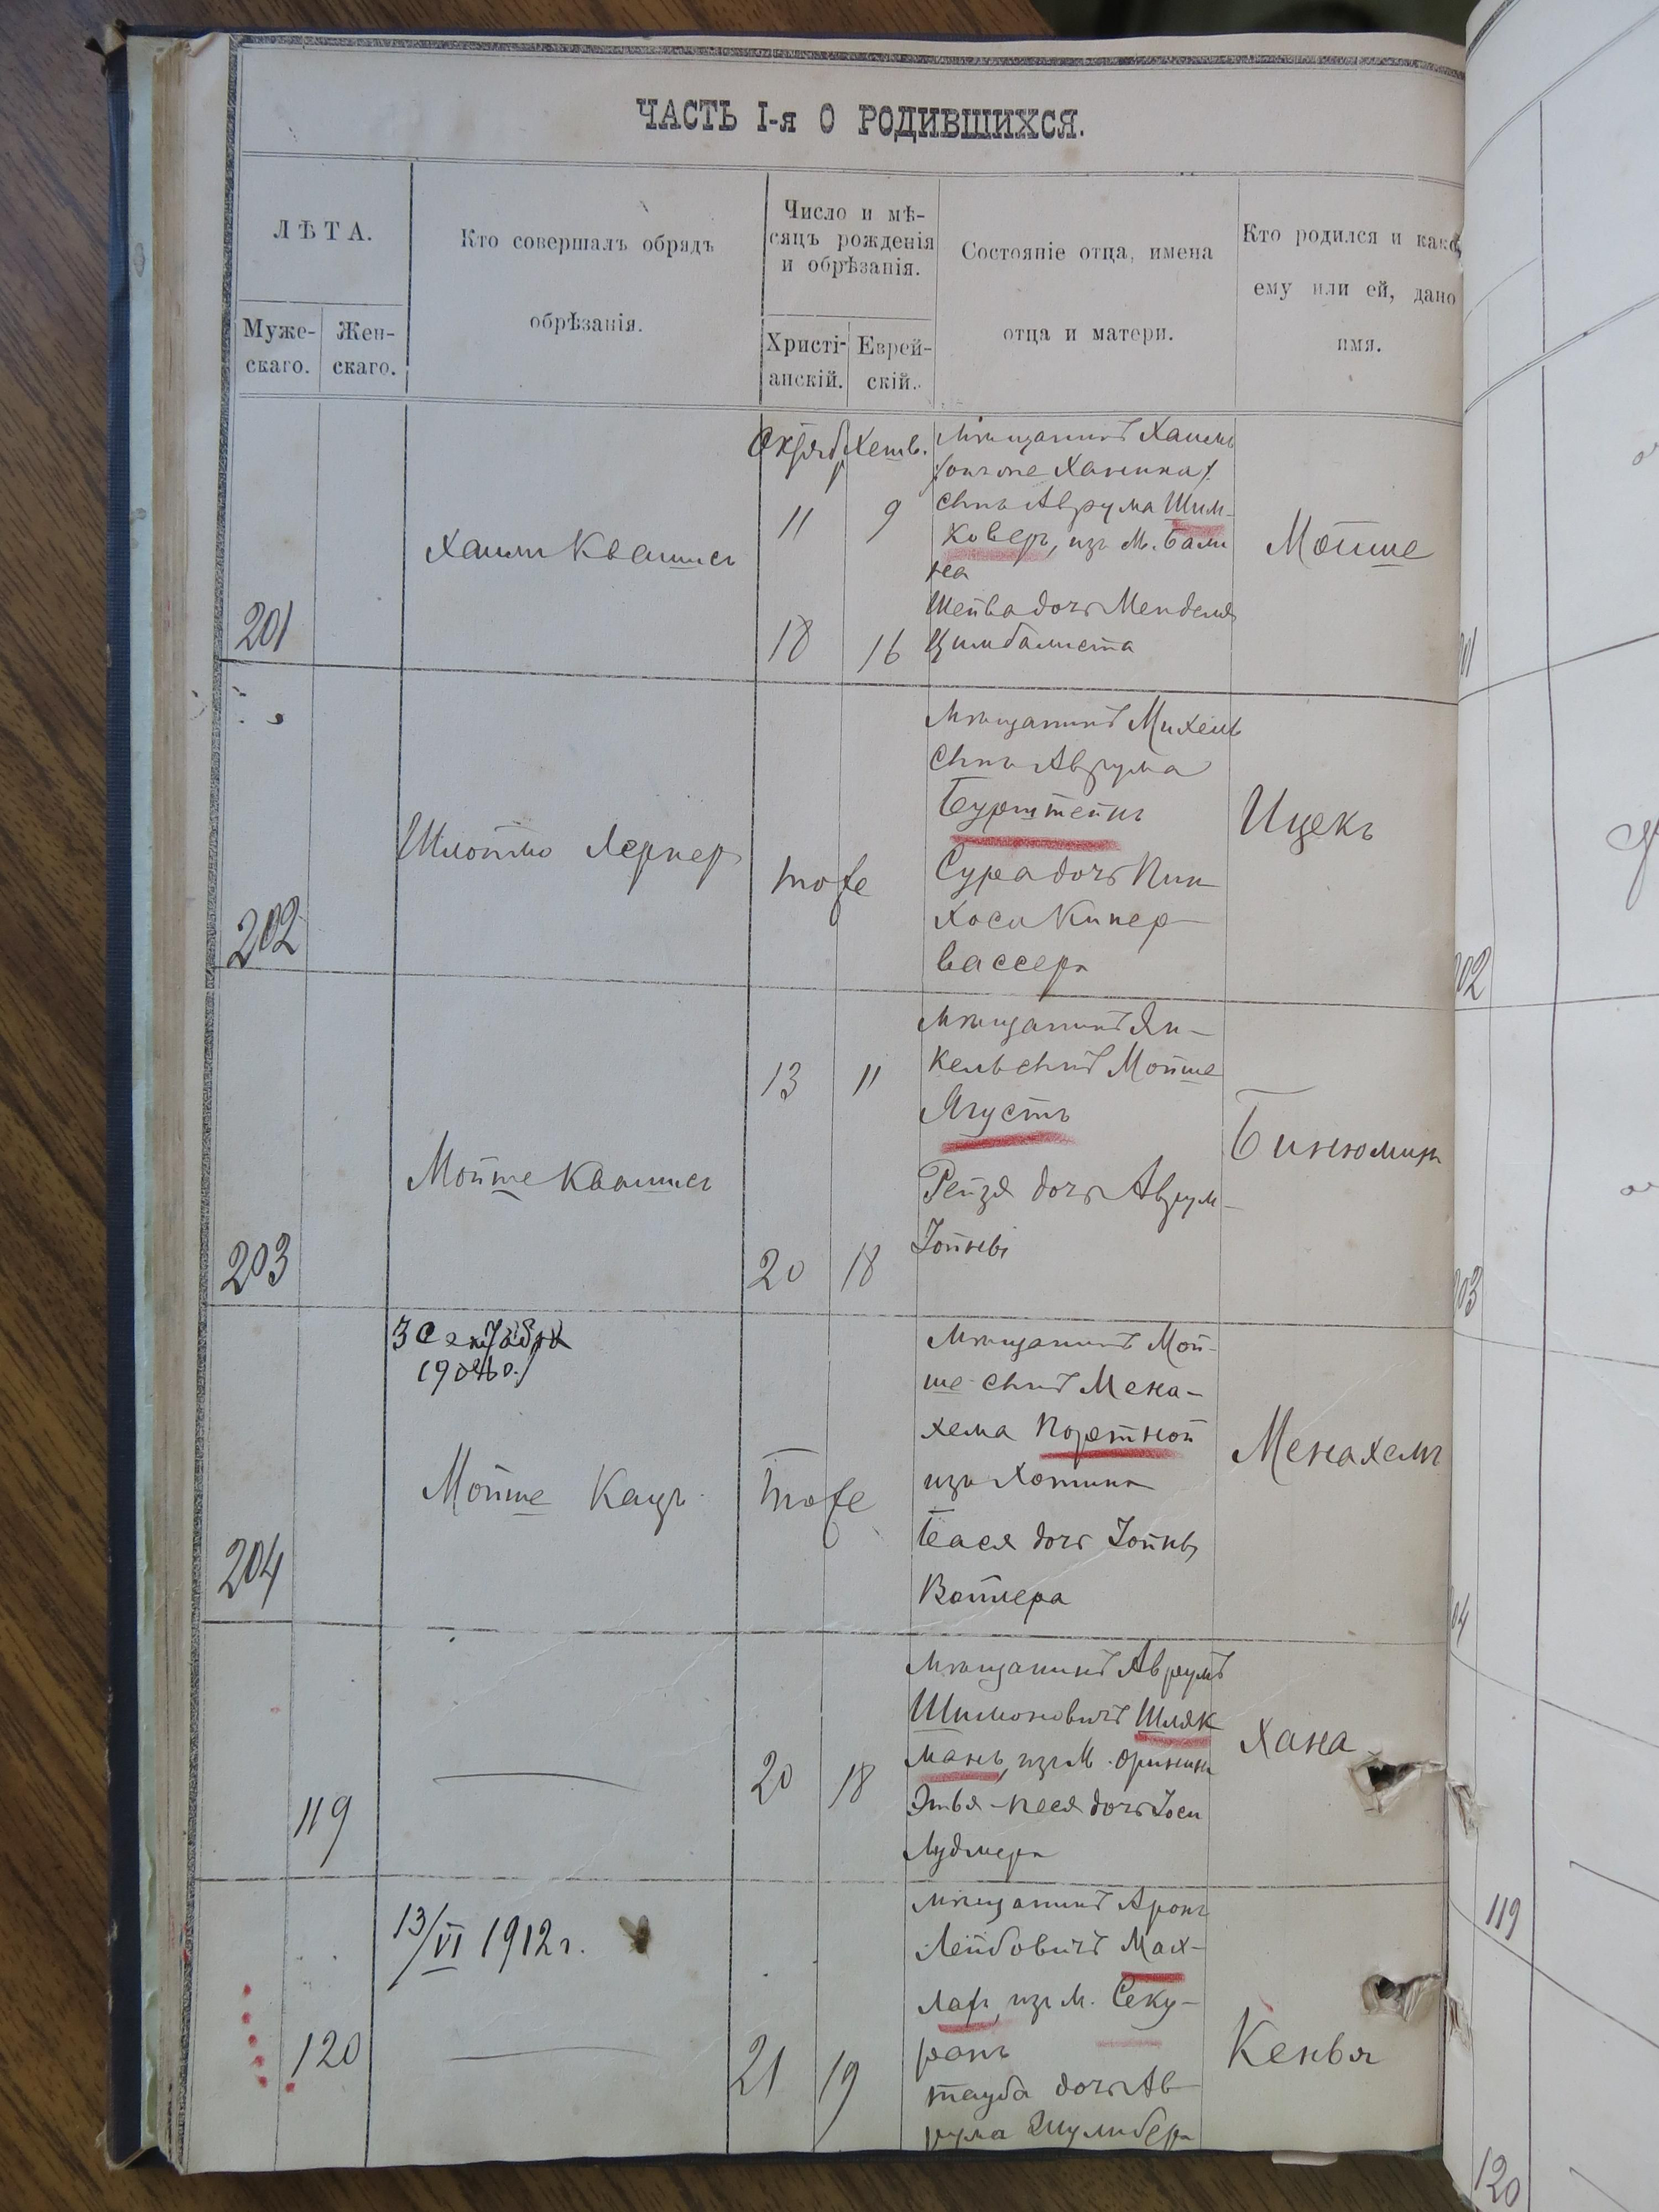 ЧАСТЬ I-я О РОДИВШИХСЯ.
ЛѢТА.
Муже-
скаго.
Жен-
скаго.
Кто совершалъ обрядъ
обрѣзанія.
Число и мѣ-
сяцъ рожденія
и обрѣзанія.
Христі-
анскій.
Еврей-
скій.
Состояніе отца, имена
отца и матери.
Кто родился и како
ему или ей, дано
имя.
201
Хаимъ Квашисъ
Октяб. Хешв.
11 9
18 16
Мѣщанинъ Хаимъ
/онъ же Ханина/
сынъ Аврума Шим-
ковер, изъ М. Бали
на
Шейва дочь Менделя
Цимбалиста
Мойше
202
Шлойме Лернер
тоже
Мѣщанинъ Михель
сынъ Аврума
Бурштейнъ
Сура дочь Пин
хоса Кипер
вассера
Ицекъ
203
Мойше Квашисъ
13 11
20 18
Мѣщанинъ Ян-
кель сынъ Мойше
Ягустъ
Рейзя дочь Аврум-
Іойны
Бинюминъ
204
3 Сентября
Мойше Кацъ
тоже
Мѣщанинъ Мой-
ше сынъ Мена-
хема Портной
изъ Хотина
Бася дочь Іойны
Вотлера
Менахемъ
119
20 18
Мѣщанинъ Аврумъ
Шимоновичъ Шляк
манъ, изъ М. Оринина
Этья-Песя дочь Іося
Лудмера
Хана
120
13/VI 1912 г.
21 19
Мѣщанинъ Аронъ
Лейбовичъ Мах-
лар, изъ М. Секу-
рянъ
Тауба дочь Ав
рума Шулибера
Кенья
201
202
203
204
119
120